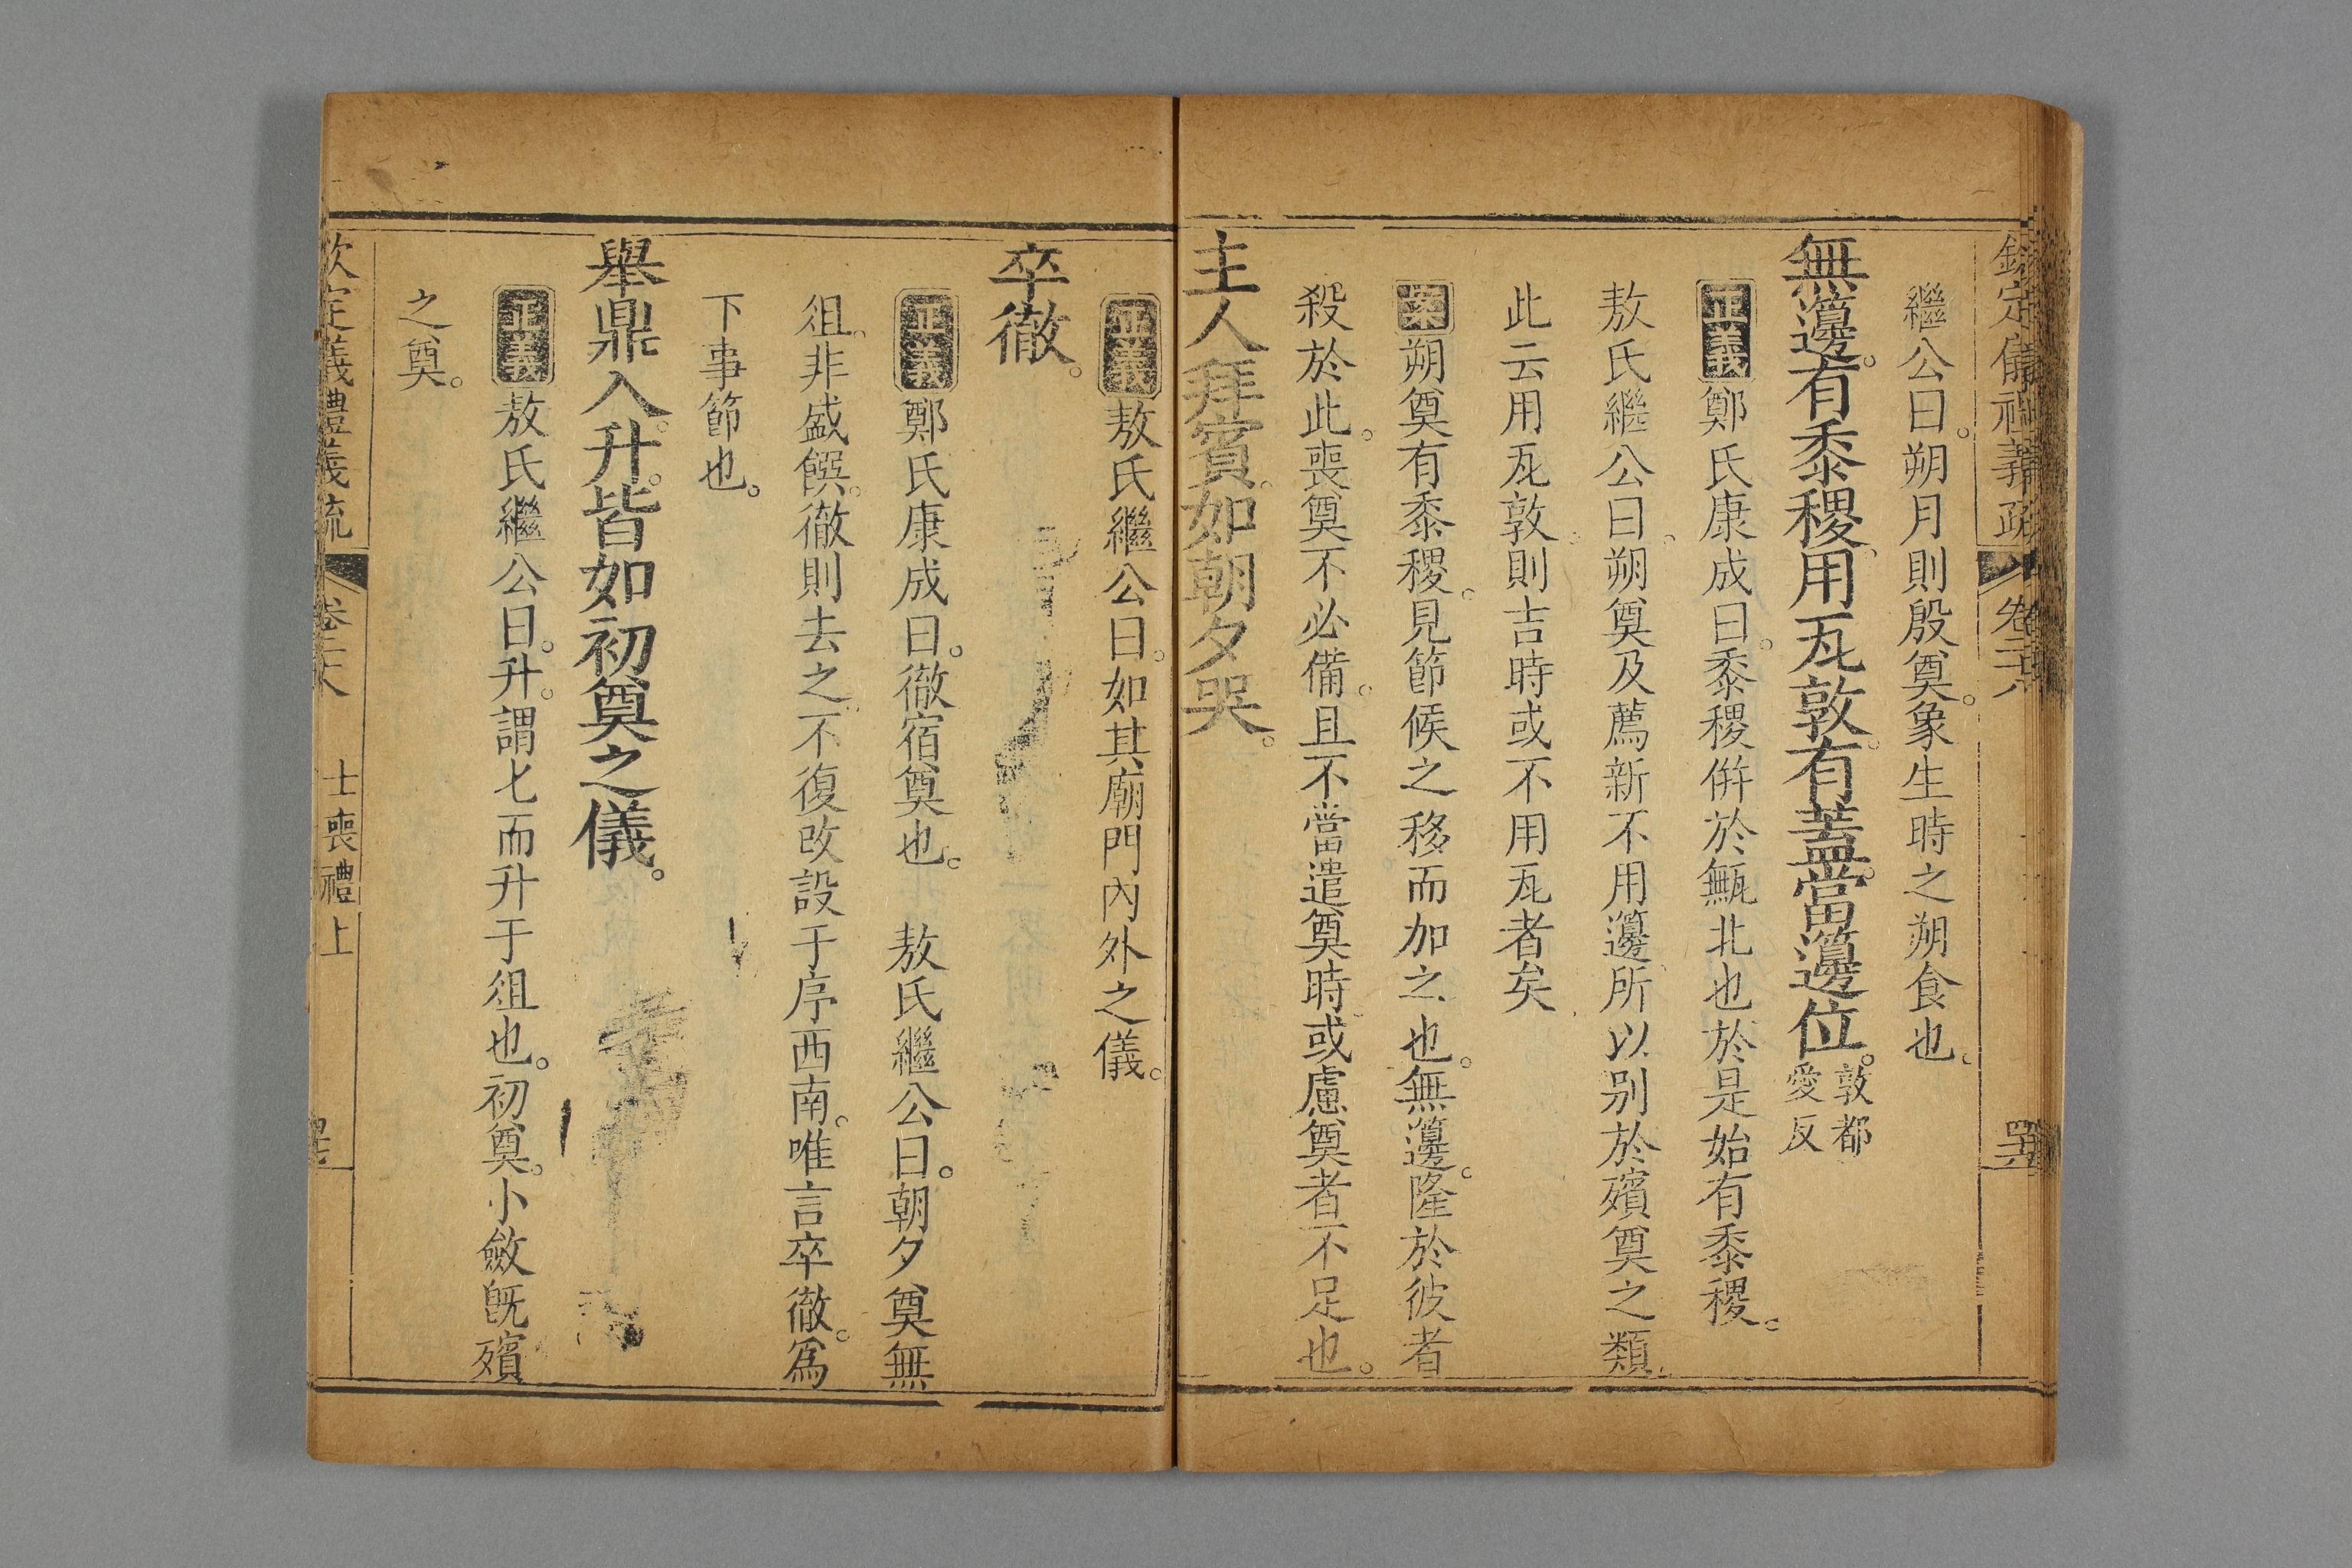 欽定儀禮義疏 卷二十八
繼公曰。朔月則殷奠。象生時之朔食也。
無籩。有黍稷。用瓦敦。有蓋。當籩位。敦都愛反
正義鄭氏康成曰。黍稷倂於甒北也於是始有黍稷。
敖氏繼公曰。朔奠及薦新不用籩所以别於殯奠之類
此云用瓦敦。則吉時或不用瓦者矣
案朔奠有黍稷。見節候之移而加之也。無籩。隆於彼者
殺於此。喪奠不必備。且不當遣奠時或慮奠者不足也。
主人拜賓。如朝夕哭。
正義敖氏繼公曰。如其廟門內外之儀。
卒徹。
正義鄭氏康成曰。徹宿奠也。 敖氏繼公曰。朝夕奠無
俎。非盛饌。徹則去之。不復改設于序西南。唯言卒徹。爲
下事節也。
舉鼎入。升。皆如初奠之儀。
正義敖氏繼公曰。升。謂匕而升于俎也。初奠。小斂旣殯
之奠。
欽定義禮義疏 卷二十八 士喪禮上